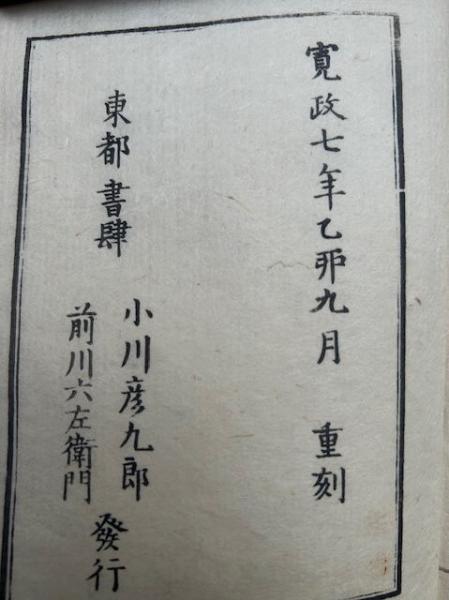 寛政七年乙卯九月　重刻
東都書肆
小川彦九郎
前川六左衛門
發行